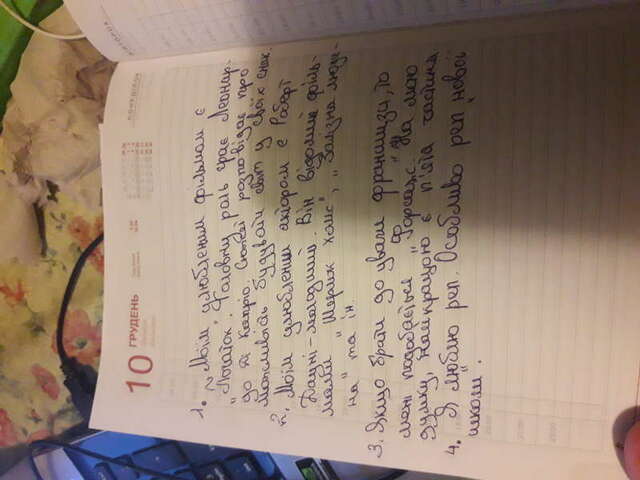 10
ГРУДЕНЬ
ПОНЕДІЛОК
ВІВТОРОК
1. Моїм улюбленим фільмом є
"Початок". Головну роль грає Леонар-
до ді Капріо. Сюжет розповідає про
можливість будувати світ у своїх снах
2. Моїм улюбленим актором є Роберт
Дауні-молодший. Він відомий філь-
мами "Шерлок Холмс", "Залізна люди-
на" та ін.
3. Якщо брати до уваги франшизи, то
мені подобається "Форсаж". На мою
думку, найкращою є п'ята частина
4. Я люблю реп. Особливо реп нової
школи.